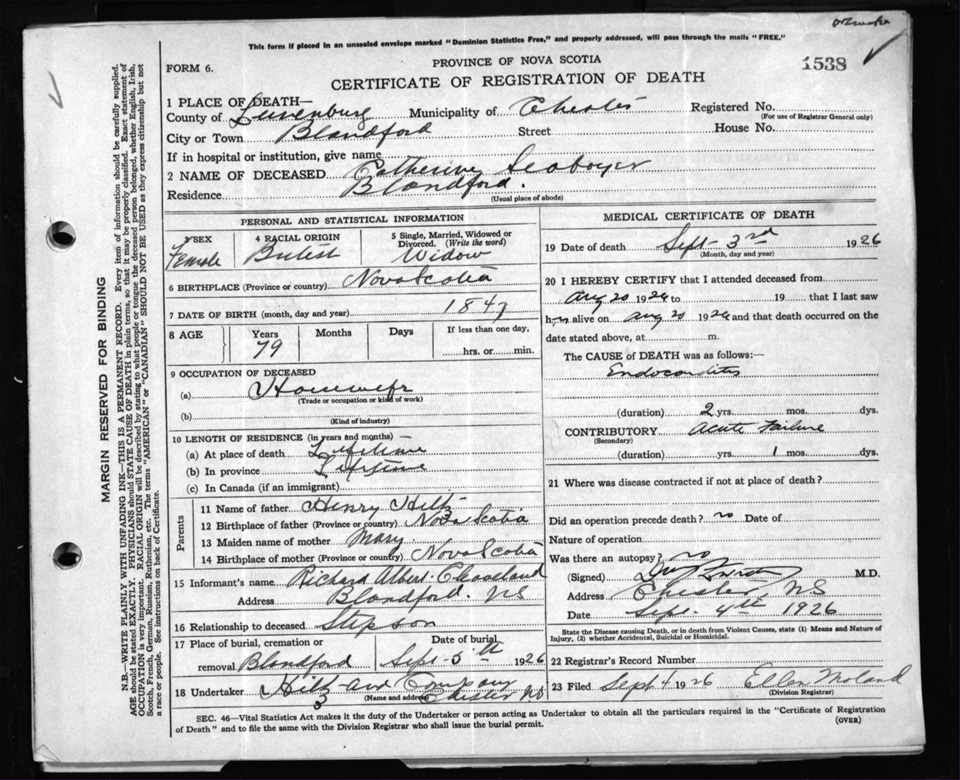 This form if placed in an unsealed envelope marked "Dominion Statistics Free," and properly addressed, will pass through the mails "FREE."
FORM 6.
PROVINCE OF NOVA SCOTIA
1538
CERTIFICATE OF REGISTRATION OF DEATH
MARGIN RESERVED FOR BINDING
N.B.—WRITE PLAINLY WITH UNFADING INK—THIS IS A PERMANENT RECORD. Every item of information should be carefully supplied.
AGE should be stated EXACTLY. PHYSICIANS should STATE CAUSE OF DEATH in plain terms, so that it may be properly classified. Exact statement of
OCCUPATION is very important. RACIAL ORIGIN will be described by stating to what people or tongue the deceased person belonged, whether English, Irish,
Scotch, French, German, Russian, Ruthenian, etc. The terms "AMERICAN" or "CANADIAN" SHOULD NOT BE USED as they express citizenship but not
a race or people. See instructions on back of Certificate.
1 PLACE OF DEATH—
County of Lunenburg Municipality of Chester Registered No.
(For use of Registrar General only)
City or Town Blandford Street House No.
If in hospital or institution, give name
2 NAME OF DECEASED Catherine Seaboyer
Residence Blandford.
(Usual place of abode)
PERSONAL AND STATISTICAL INFORMATION
3 SEX Female
4 RACIAL ORIGIN British
5 Single, Married, Widowed or Divorced. (Write the word) Widow
6 BIRTHPLACE (Province or country) Nova Scotia
7 DATE OF BIRTH (month, day and year) 1847
8 AGE Years 79 Months Days If less than one day,
hrs. or min.
9 OCCUPATION OF DECEASED
(a) Housewife
(Trade or occupation or kind of work)
(b)
(Kind of industry)
10 LENGTH OF RESIDENCE (in years and months)—
(a) At place of death Lifetime
(b) In province Lifetime
(c) In Canada (if an immigrant)
Parents
11 Name of father Henry Hiltz
12 Birthplace of father (Province or country) Nova Scotia
13 Maiden name of mother Mary
14 Birthplace of mother (Province or country) Nova Scotia
15 Informant's name Richard Albert
Address Blandford. NS
16 Relationship to deceased Step son
17 Place of burial, cremation or removal Blandford Date of burial Sept- 5th 1926
18 Undertaker Hiltz and Company
(Name and address) Chester N.S
MEDICAL CERTIFICATE OF DEATH
19 Date of death Sept- 3rd 1926
(Month, day and year)
20 I HEREBY CERTIFY that I attended deceased from
Aug 20 1926 to 19 that I last saw
her alive on Aug 20 1926 and that death occurred on the
date stated above, at m.
The CAUSE of DEATH was as follows:
Endocarditis
(duration) 2 yrs. mos. dys.
CONTRIBUTORY Acute Failure
(Secondary)
(duration) yrs. 1 mos. dys.
21 Where was disease contracted if not at place of death?
Did an operation precede death? no Date of
Nature of operation
Was there an autopsy? no
(Signed) M.D.
Address Chester, NS
Date Sept. 4th 1926
State the Disease causing Death, or in death from Violent Causes, state (1) Means and Nature of
Injury, (2) whether Accidental, Suicidal or Homicidal.
22 Registrar's Record Number
23 Filed Sept 4 1926 Ellen
(Division Registrar)
SEC. 46—Vital Statistics Act makes it the duty of the Undertaker or person acting as Undertaker to obtain all the particulars required in the "Certificate of Registration
of Death" and to file the same with the Division Registrar who shall issue the burial permit.
(OVER)